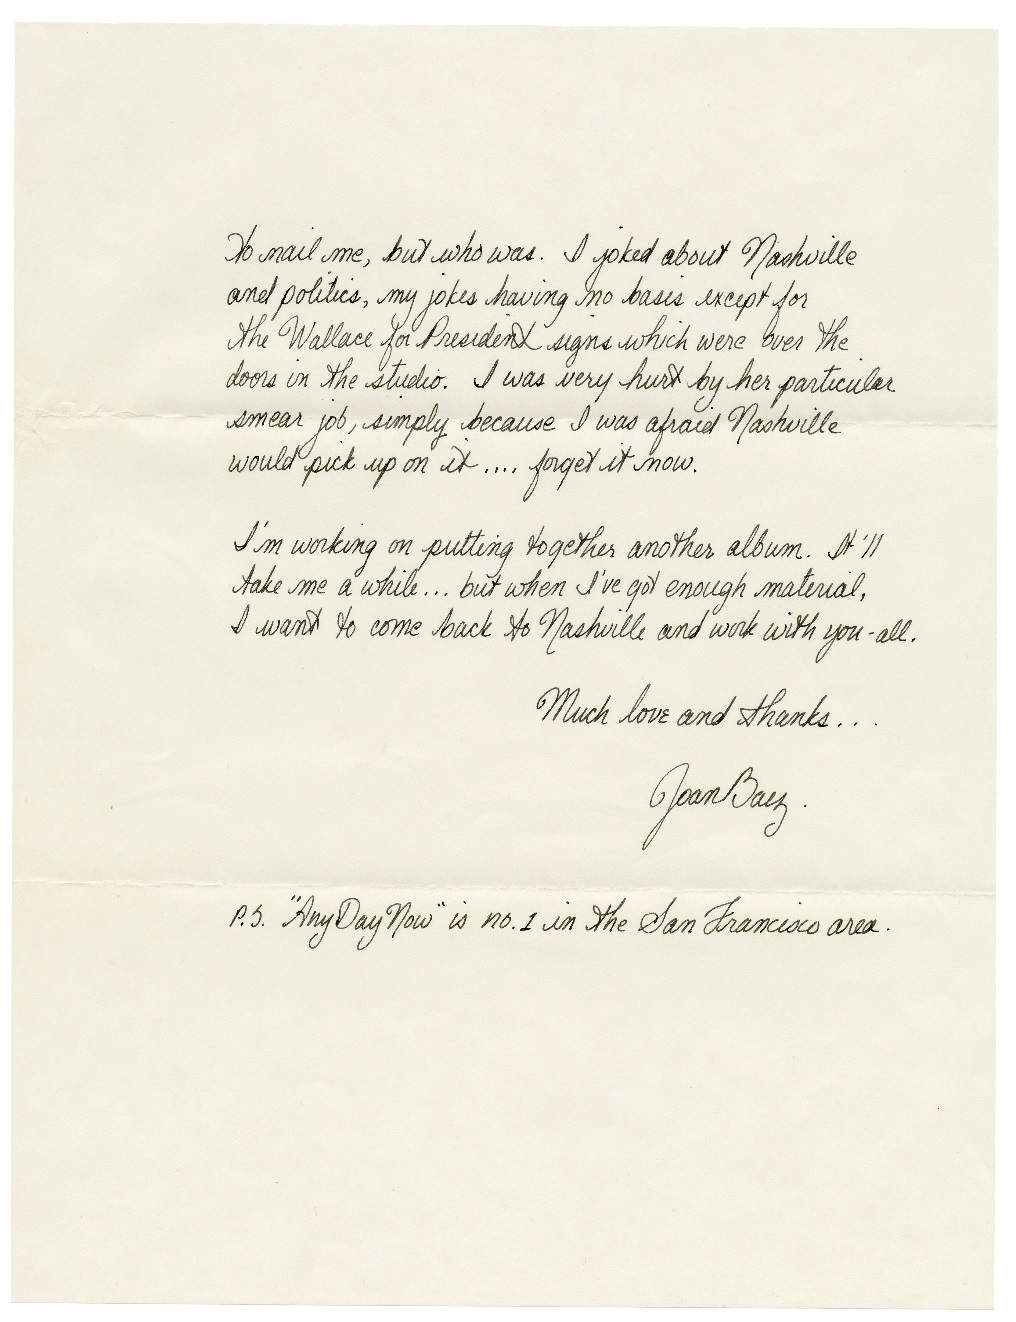 to nail me, but who was. I joked about Nashville
and politics, my jokes having no basis except for
the Wallace for President signs which were over the
doors in the studio. I was very hurt by her particular
smear job, simply because I was afraid Nashville
would pick up on it.... forget it now.
I'm working on putting together another album. It'll
take me a while... but when I've got enough material,
I want to come back to Nashville and work with you-all.
Much love and thanks...
Joan Baez.
P.S. "Any Day Now" is no. 1 in the San Francisco area.